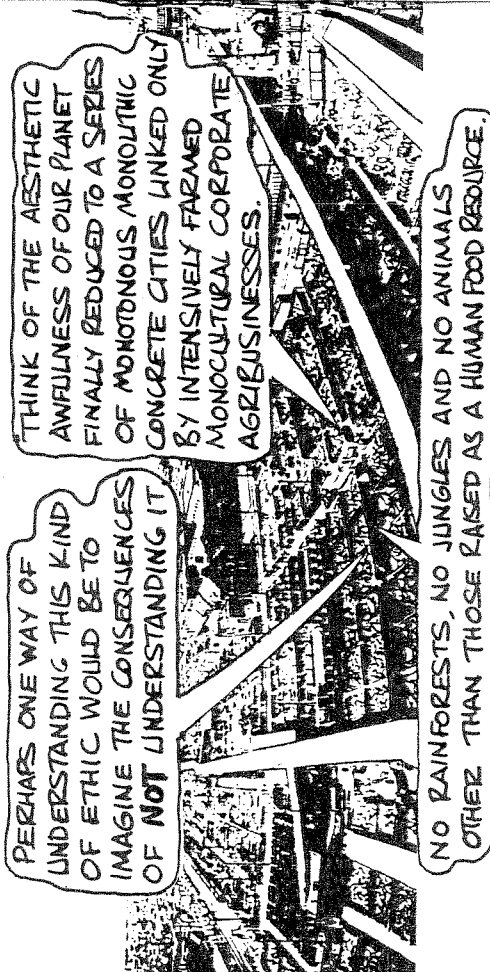 PERHAPS ONE WAY OF
UNDERSTANDING THIS KIND
OF ETHIC WOULD BE TO
IMAGINE THE CONSEQUENCES
OF NOT UNDERSTANDING IT
THINK OF THE AESTHETIC
AWFULNESS OF OUR PLANET
FINALLY REDUCED TO A SERIES
OF MONOTONOUS MONOLITHIC
CONCRETE CITIES LINKED ONLY
BY INTENSIVELY FARMED
MONOCULTURAL CORPORATE
AGRIBUSINESSES.
NO RAINFORESTS, NO JUNGLES AND NO ANIMALS
OTHER THAN THOSE RAISED AS A HUMAN FOOD RESOURCE.